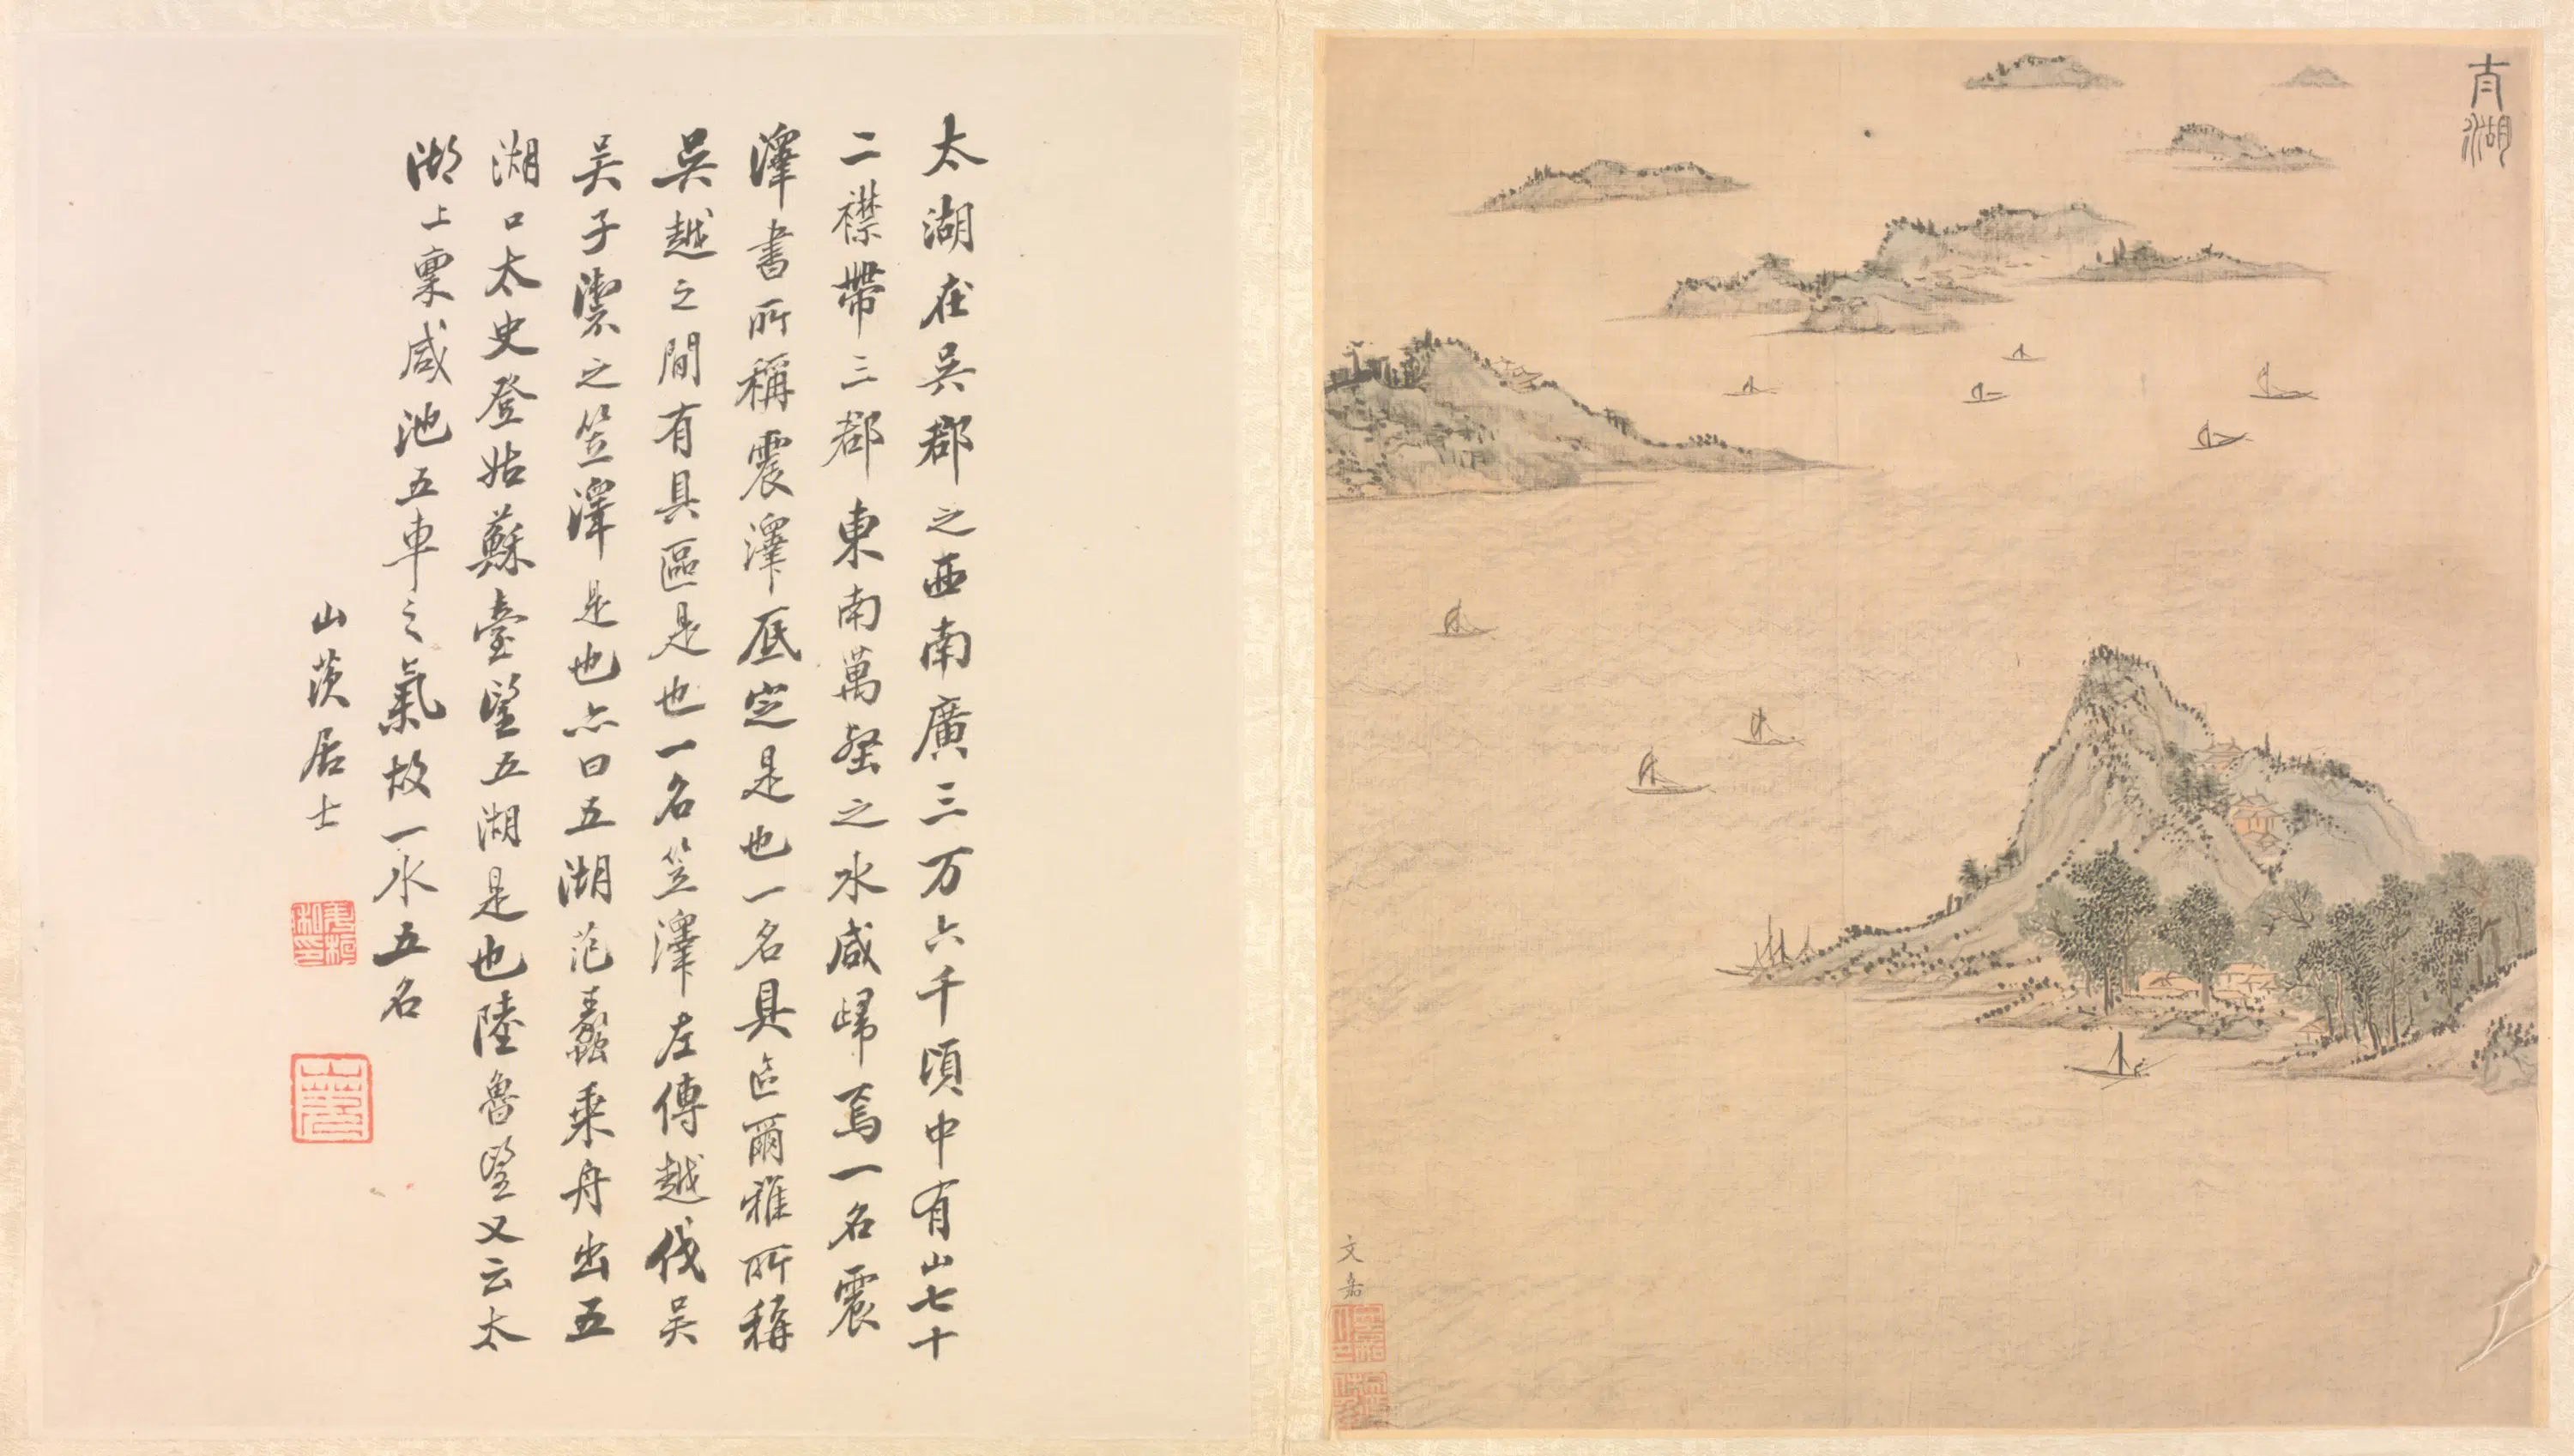 太湖
文嘉
太湖在吳郡之西南廣三万六千頃中有山七十
二襟帶三郡東南萬壑之水咸歸焉一名震
澤書所稱震澤底定是也一名具區爾雅所稱
吳越之間有具區是也一名笠澤左傳越伐吴
吴子禦之笠澤是也亦曰五湖范蠡乘舟出五
湖口太史登姑蘇臺望五湖是也陸魯望又云太
湖上稟咸池五車之氣故一水五名
山茨居士